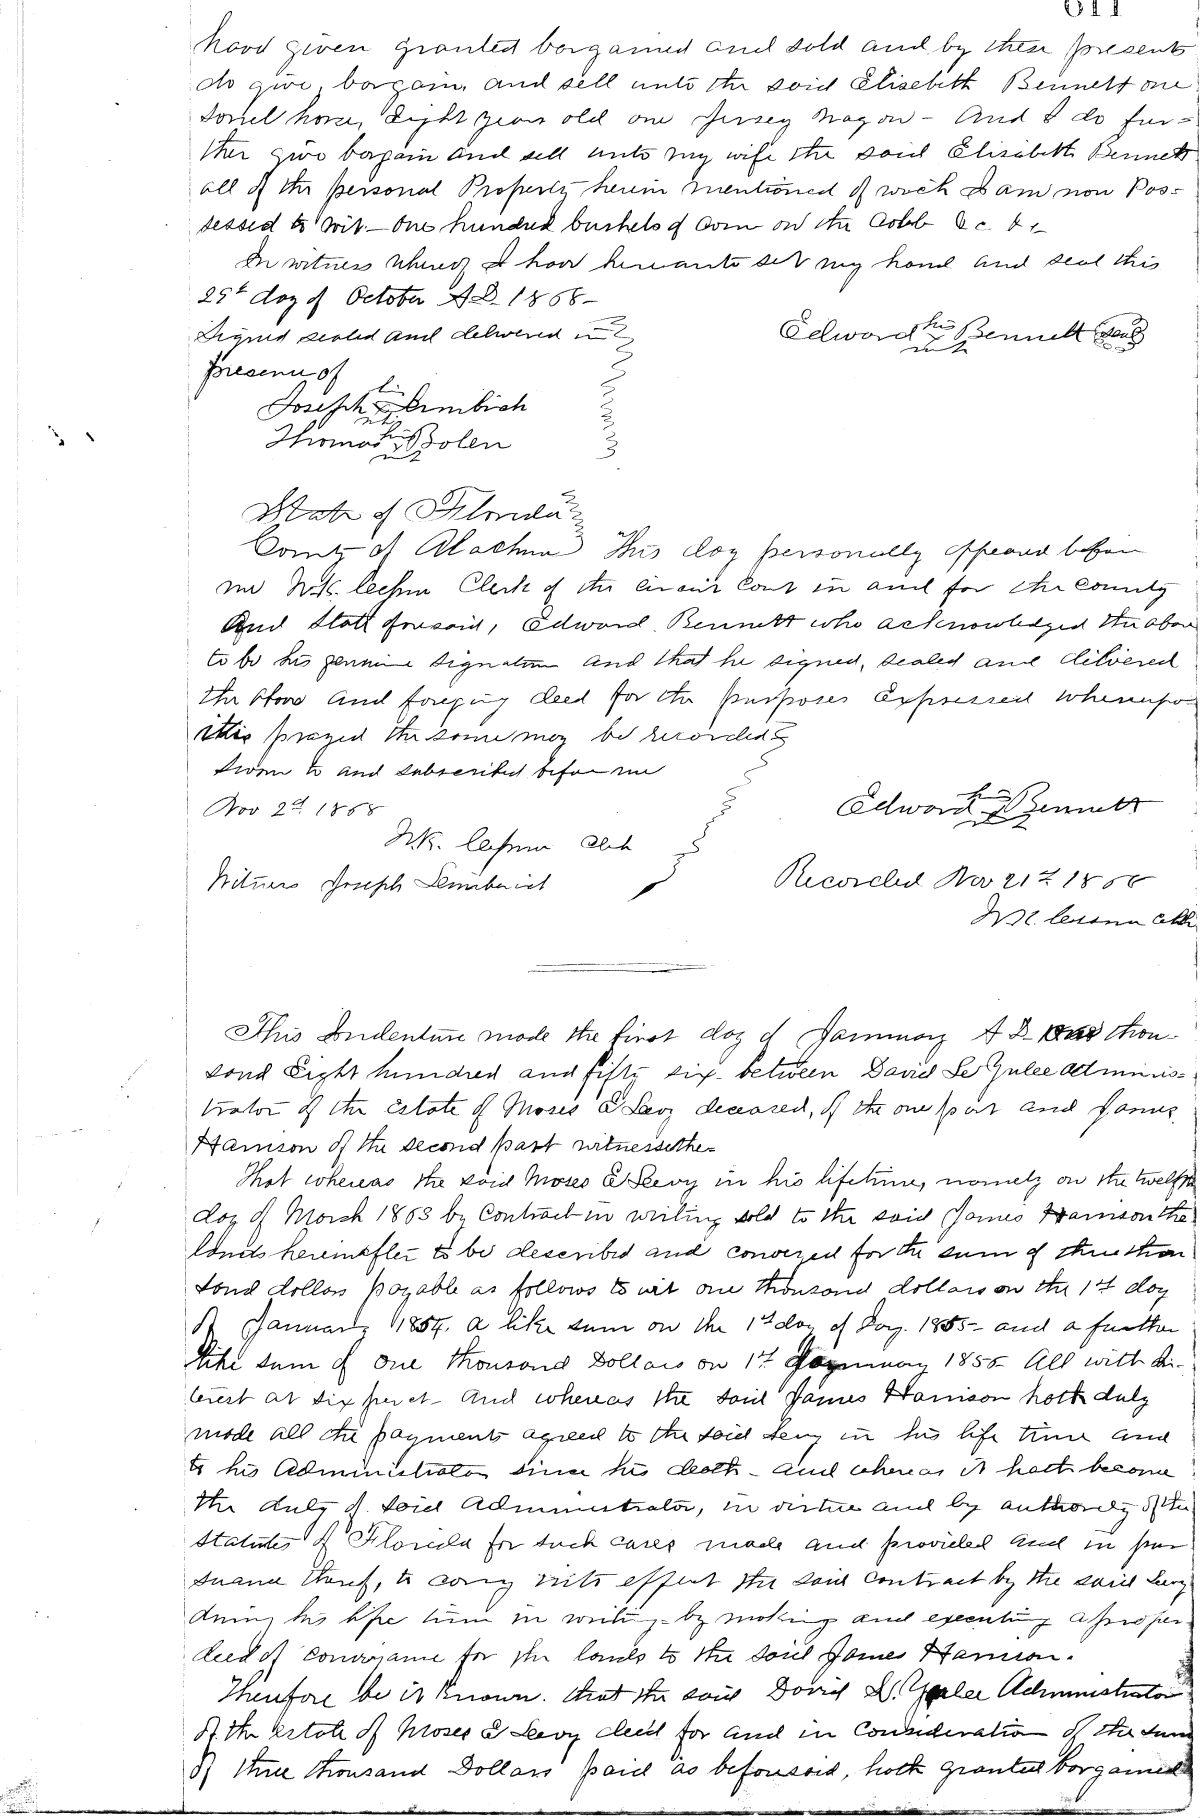 611
have given granted bargained and sold and by these presents
do give, bargain, and sell unto the said Elisebeth Bennett one
sorrel horse, Eight years old one Jersey Wagon - And I do fur=
ther give bargain and sell unto my wife the said Elisabeth Bennett
all of the personal Property herein mentioned of wich I am now Pos=
sessed to wit - One hundred bushels of corn on the Cobb &c &c
In witness whereof I have hereunto set my hand and seal this
29th day of October A.D. 1868 -
Signed sealed and delivered in
presence of
Edward his x mark Bennett seal
Joseph
Thomas his x mark Bolen
State of Florida
County of Alachua This day personally appeared before
me Clerk of the circuit Court in and for the County
And State foresaid, Edward Bennett who acknowledged the above
to be his genuine signature and that he signed, sealed and delivered
the above and foregoing deed for the purposes Expressed whereupo
it is prayed the same may be recorded
Sworn to and subscribed before me
Nov 2d 1868
Edward his x mark Bennett
Clerk
Witness Joseph
Recorded Nov 21st 1868
This Indenture made the first day of January A D one thou-
sand Eight hundred and fifty six - between David Le Yulee Adminis=
trator of the Estate of Moses E Levy deceased, of the one part and James
Harrison of the second part witnessethe=
That whereas the said Moses E Leevy in his lifetime, namely on the twelfth
day of March 1853 by Contract in writing sold to the said James Harrison the
lands hereinafter to be described and conveyed for the sum of three thou
sand dollars payable as follows to wit one thousand dollars on the 1st day
of January 1854. a like sum on the 1st day of Jay. 1855 - and a further
like sum of One thousand Dollars on 1st January 1856 All with In-
terest at six per ct - And whereas the said James Harrison hath duly
made all the payments agreed to the said Levy in his life time and
to his Administrator since his death - and whereas it hath become
the duty of said Administrator, in virtue and by authority of the
statutes of Florida for such cases made and provided and in pur
suance thereof, to carry into effect the said contract by the said Levy
during his life time in writing - by making and executing a proper
deed of conveyance for the lands to the said James Harrison.
Therefore be it Known. that the said David L. Yulee Administrator
of the estate of Moses E Leevy dec'd for and in Consideration of the sum
of three thousand Dollars paid as beforesaid, hath granted bargained